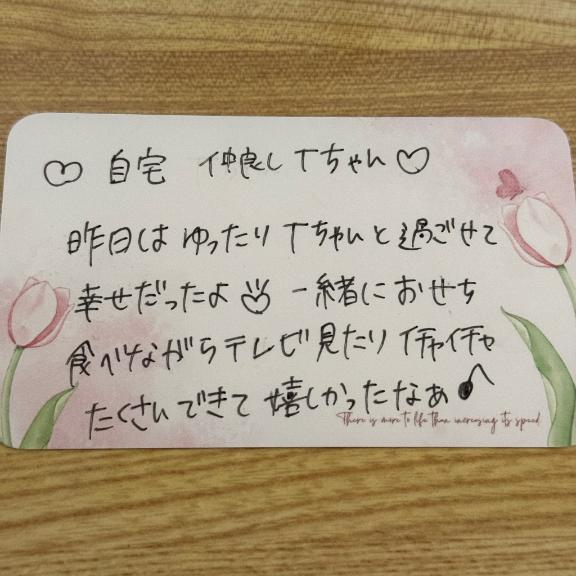 ♡ 自宅 仲良し Tちゃん♡
昨日は ゆったり Tちゃんと過ごせて
幸せだったよ 一緒に おせち
食べながらテレビ見たり イチャイチャ
たくさんできて 嬉しかったなあ♪
There is more to life than increasing its speed